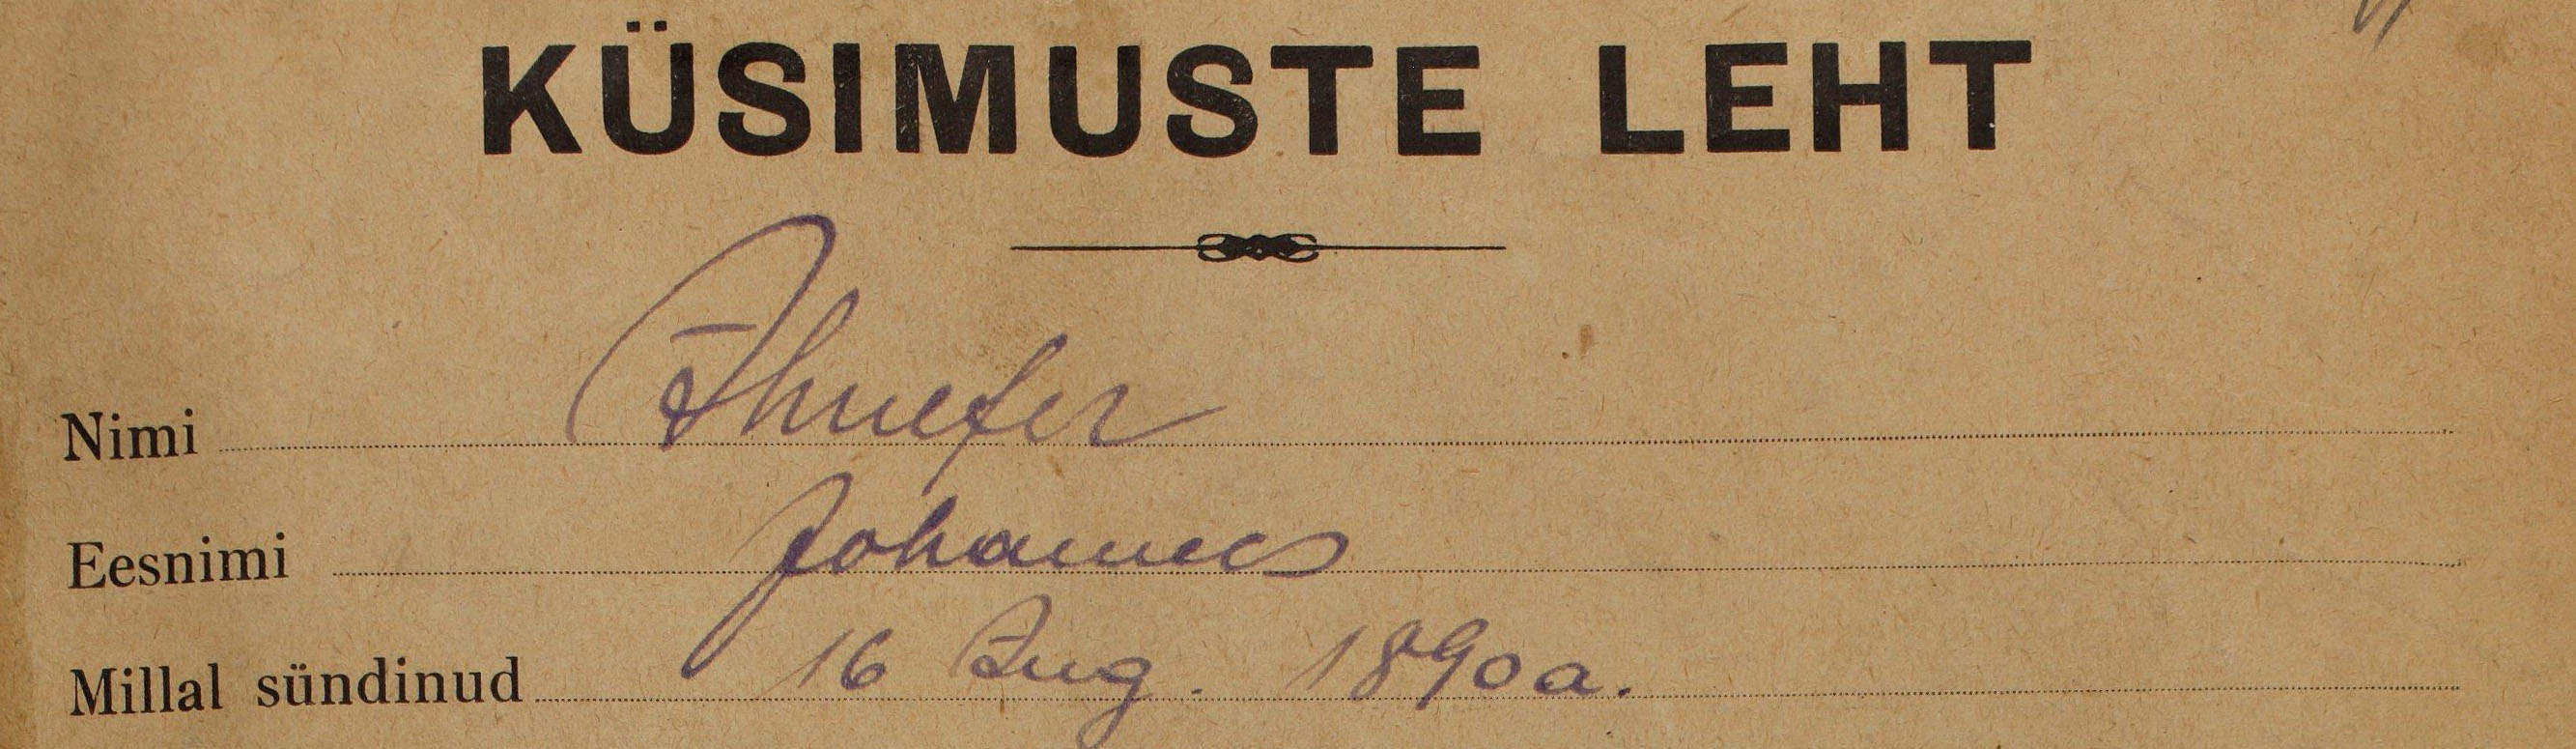 KÜSIMUSTE LEHT
Nimi
Eesnimi Johannes
Millal sündinud 16 Aug. 1890 a.